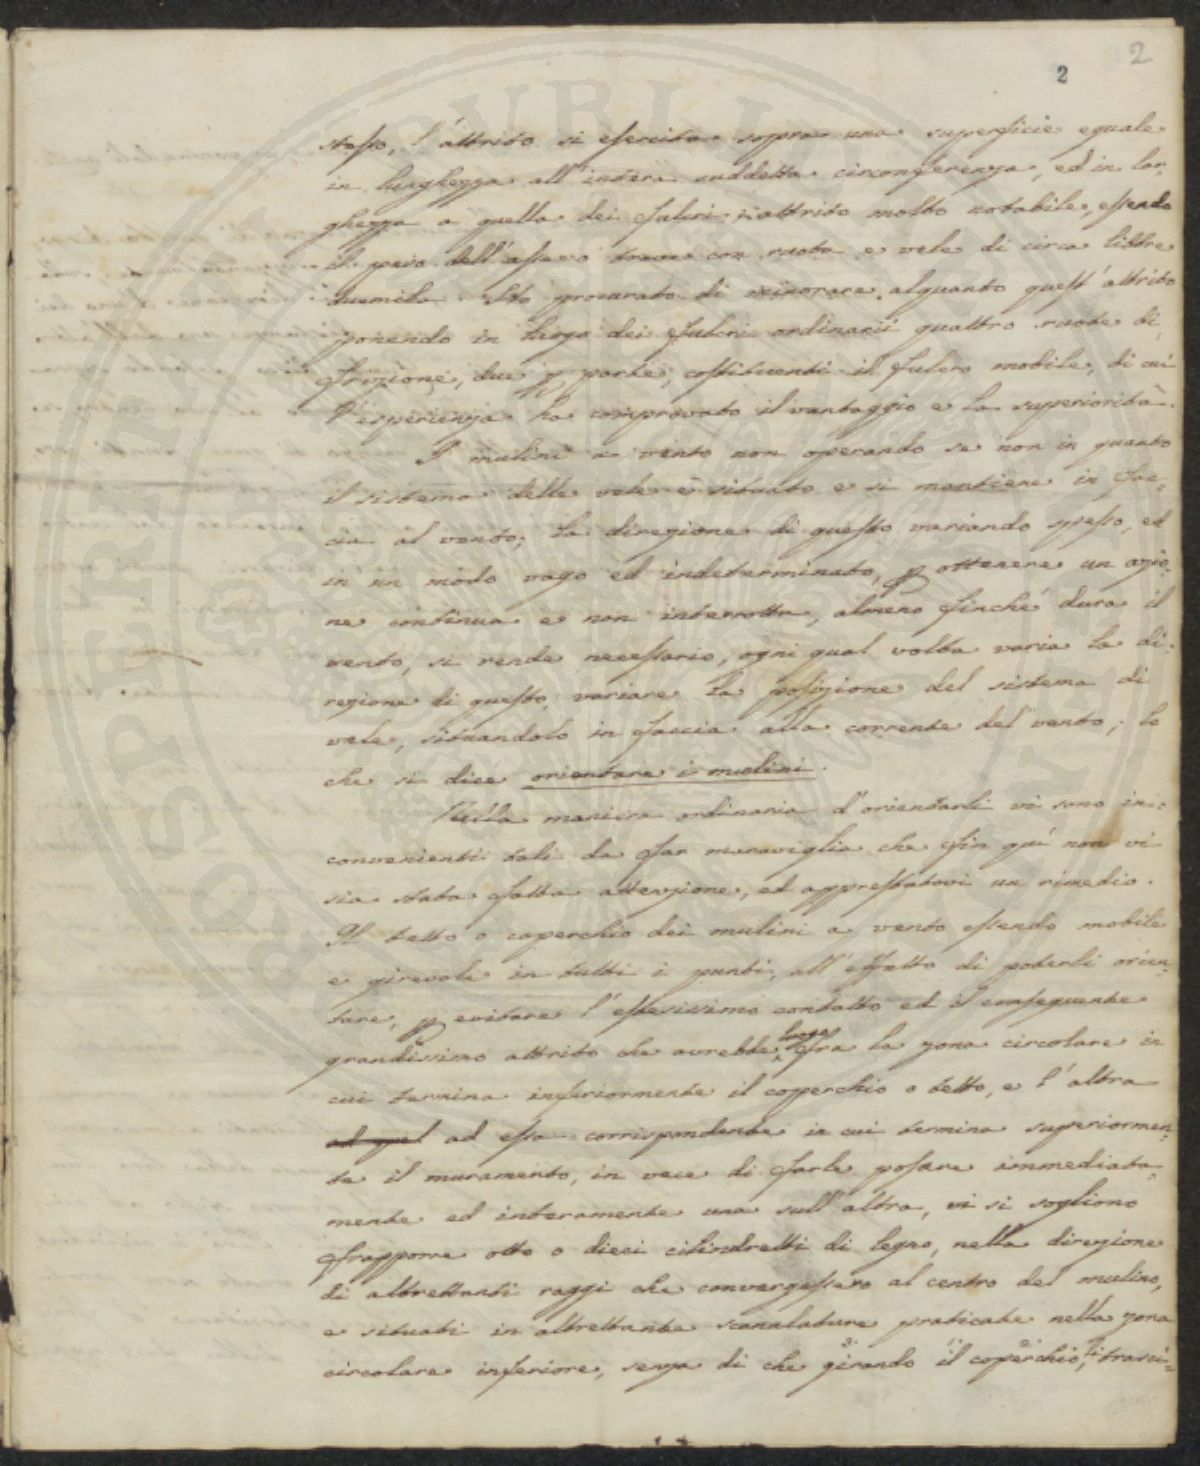 2
2
stesso, l'attrito si esercita sopra una superficie eguale
in lunghezza all'intera suddetta circonferenza, ed in lar-
ghezza a quella dei fulcri: attrito molto notabile, essendo
il peso dell'asse o trave con ruota e vele di circa libbre
duemila. Ho procurato di minorare alquanto quest'attrito
ponendo in luogo dei fulcri ordinarii quattro ruote di
frizione, due p parte, costituenti il fulcro mobile, di cui
l'esperienza ha comprovato il vantaggio e la superiorità.
I mulini a vento non operando se non in quanto
il sistema delle vele è situato e si mantiene in fac-
cia al vento; la direzione di questo variando spesso, ed
in un modo vago ed indeterminato, p ottenere un azio-
ne continua e non interrotta, almeno finché dura il
vento, si rende necessario, ogni qual volta varia la di-
rezione di questo, variare la posizione del sistema di
vele, situandolo in faccia alla corrente del vento; lo
che si dice orientare i mulini.
Nella maniera ordinaria d'orientarli vi sono in-
convenienti tali da far meraviglia che fin quì non vi
sia stata fatta attenzione, ed apprestatovi un rimedio.
Il tetto o coperchio dei mulini a vento essendo mobile
e girevole in tutti i punti, all'effetto di poterli orien-
tare, p evitare l'estesissimo contatto ed il conseguente
grandissimo attrito che avrebbe luogo fra la zona circolare in
cui termina inferiormente il coperchio o tetto, e l'altra
ad quel ad essa corrispondente in cui termina superiormen-
te il muramento, in vece di farle posare immediata-
mente ed interamente una sull'altra, vi si sogliono
frapporre otto o dieci cilindretti di legno, nella direzione
di altrettanti raggi che convergessero al centro del mulino,
e situati in altrettante scanalature praticate nella zona
circolare inferiore, senza di che girando il coperchio, li trasci-